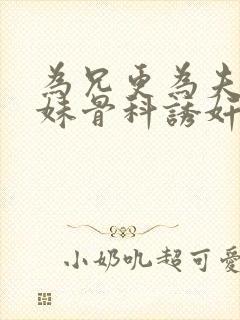 為兄更為夫
妹骨科誘奸
小奶吼超可愛